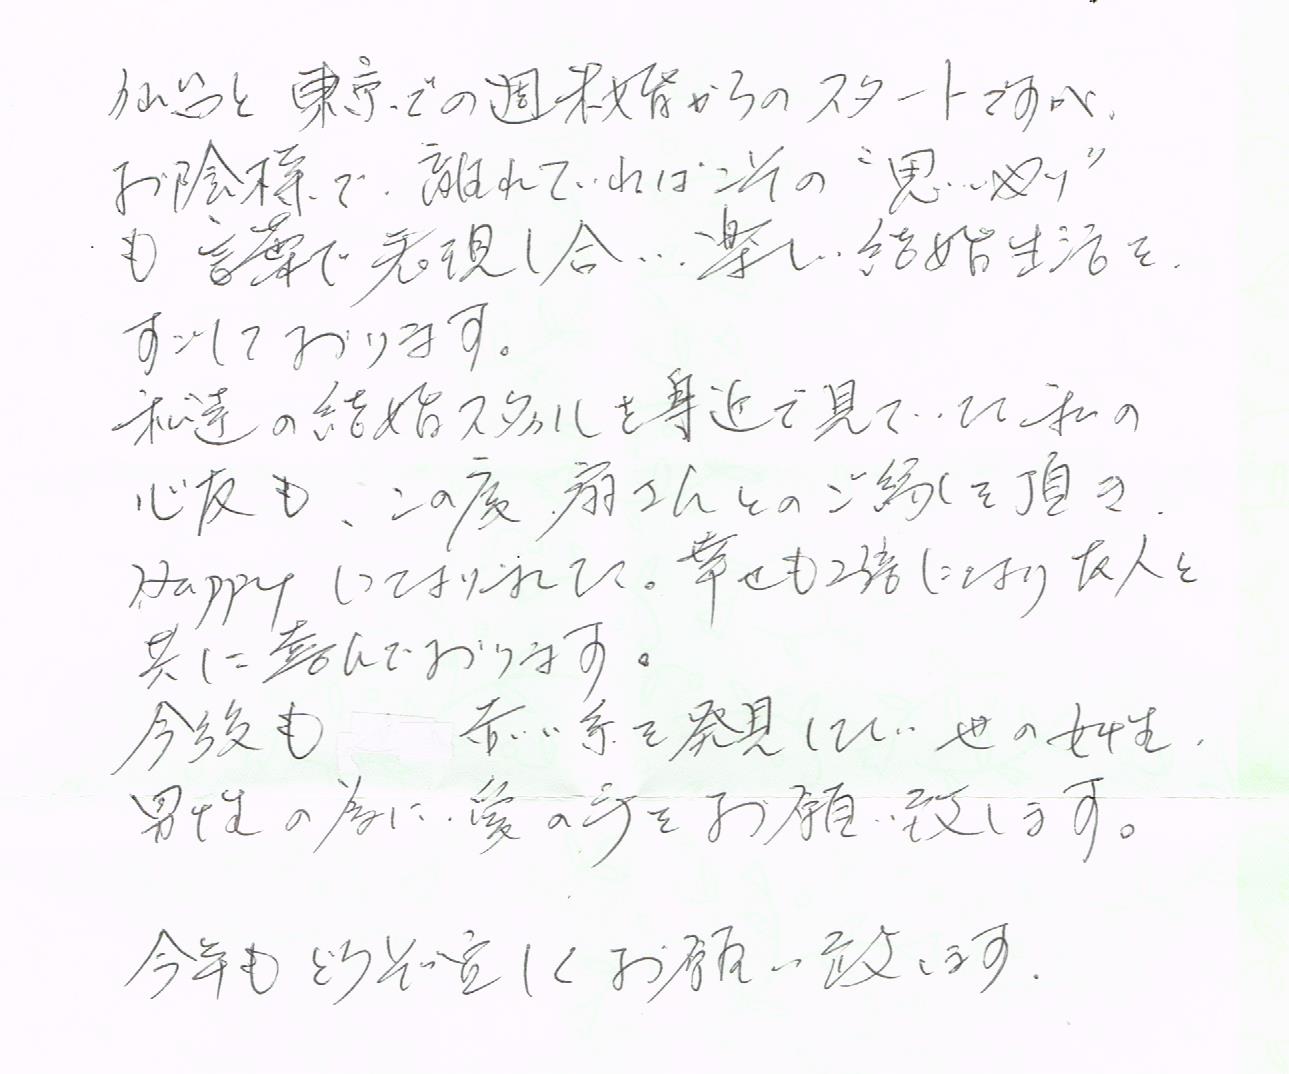 仙台と東京での週末婚からのスタートですが、
お陰様で、離れていればこその“思いやり”
も言葉で表現し合い、楽しい結婚生活を、
すごしております。
私達の結婚スタイルを身近で見ていた私の
心友も、この度、扇さんとのご縁しを頂き、
Happyになりました。幸せも2倍になり友人と
共に喜んでおります。
今後も 赤い糸を発見したい世の女性、
男性の為に、愛の手をお願い致します。
今年もどうぞ宜しくお願い致します。